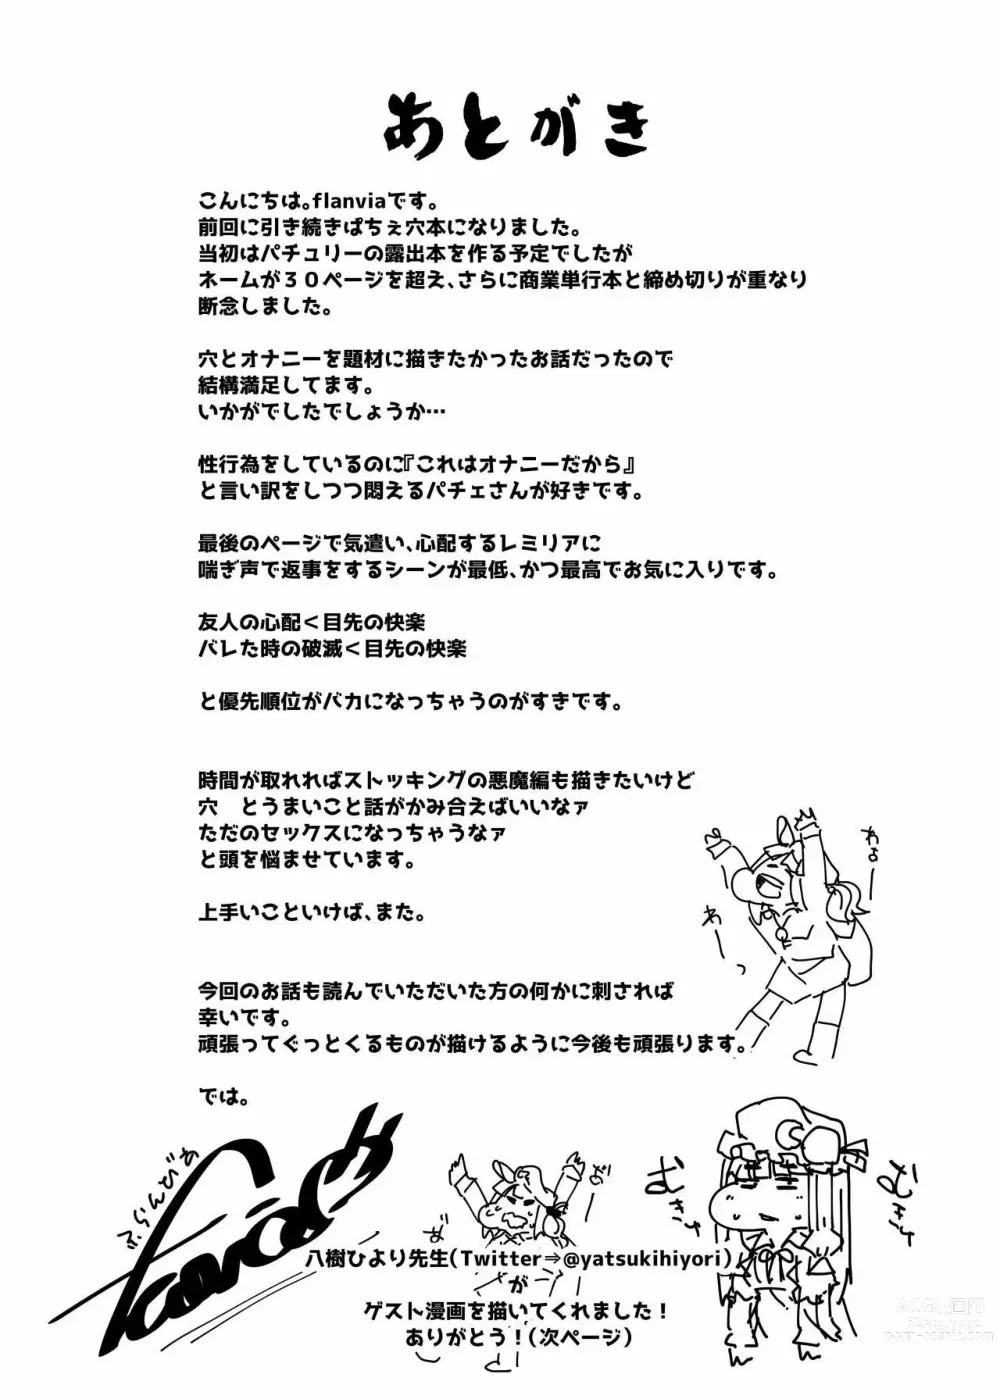 あとがき
こんにちは。flanviaです。
前回に引き続きぱちぇ穴本になりました。
当初はパチュリーの露出本を作る予定でしたが
ネームが３０ページを超え、さらに商業単行本と締め切りが重なり
断念しました。
穴とオナニーを題材に描きたかったお話だったので
結構満足してます。
いかがでしたでしょうか…
性行為をしているのに『これはオナニーだから』
と言い訳をしつつ悶えるパチェさんが好きです。
最後のページで気遣い、心配するレミリアに
喘ぎ声で返事をするシーンが最低、かつ最高でお気に入りです。
友人の心配＜目先の快楽
バレた時の破滅＜目先の快楽
と優先順位がバカになっちゃうのがすきです。
時間が取れればストッキングの悪魔編も描きたいけど
穴　とうまいこと話がかみ合えばいいなァ
ただのセックスになっちゃうなァ
と頭を悩ませています。
わぁー
わーっ
上手いこといけば、また。
今回のお話も読んでいただいた方の何かに刺されば
幸いです。
頑張ってぐっとくるものが描けるように今後も頑張ります。
では。
ふらんびあ
むきゅ
むきゅ
八樹ひより先生(Twitter⇒@yatsukihiyori)
が
ゲスト漫画を描いてくれました！
ありがとう！(次ページ)